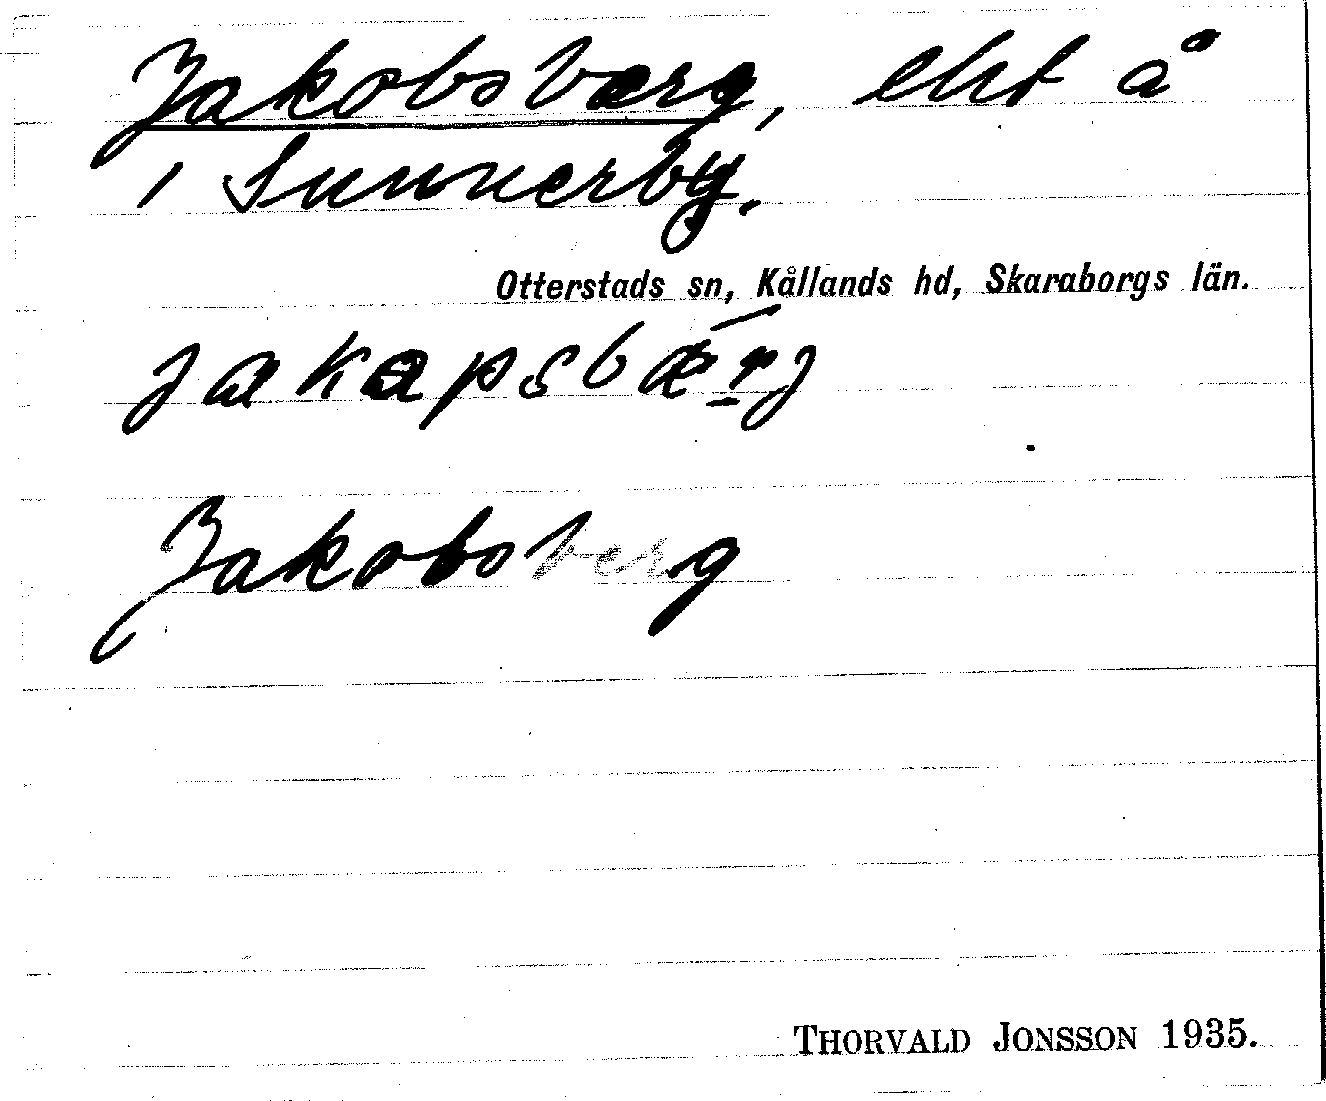 Jakobsberg, lht å
i Sunnerby.
Otterstads sn, Kållands hd, Skaraborgs län.
jakapsbærj
Jakobsberg
THORVALD JONSSON 1935.